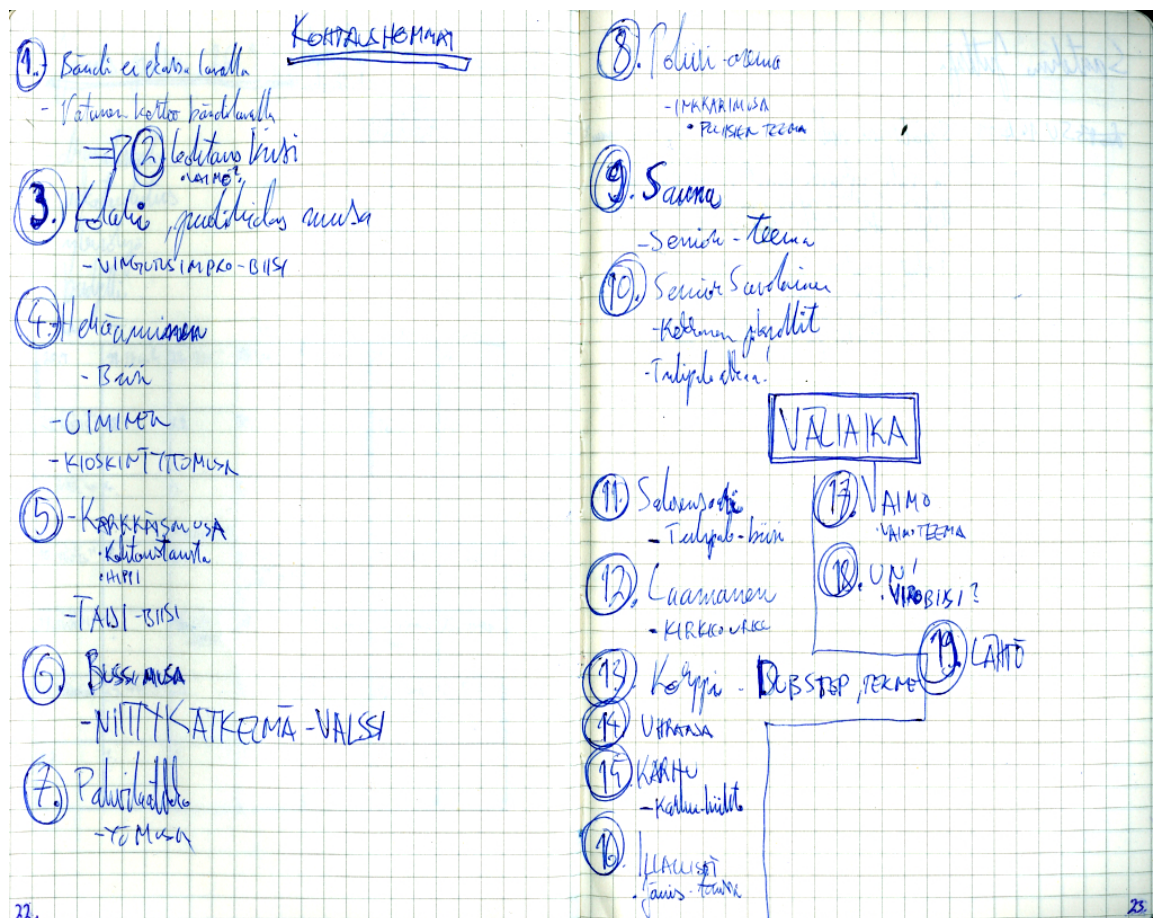 KOHTAUSHOMMAT
1. Bändi ei ekassa lavalla
- Vatanen kertoo bändilavalla
⇒ 2 kohtaus biisi
• VAIMO?
3. Kolahi, musa
- VINGUTUSIMPRO-BIISI
4. Herääminen
- Biisi
- UIMINEN
- KIOSKINTYTTÖMUSA
5 - KARKKÄISMUSA
• Kohtaustausta
• HIPPI
- TAISI-BIISI
6. BUSSIMUSA
- NIITTYKATKELMA-VALSSI
7. Palvikaatikko
- YÖMUSA
22.
8. Poliisi-asema
- INKKARIMUSA
• POLIISIEN TEEMA
9. Sauna
- Senior-teema
10. Senior Savolainen
- Kekkonen
- Tulipalo alkaa!
VÄLIAIKA
11. Salosensaari
- Tulipalo-biisi
12. Laamanen
- KIRKKOURKU
13. Korppi - DUBSTEP, TEKNO
14 UHRAAJA
15 KARHU
- Karhu-hiihto
16. ILLALLISET
• jänis-teema
17. VAIMO
• VAIMOTEEMA
18. UNI
• VIROBIISI?
19. LÄHTÖ
23.